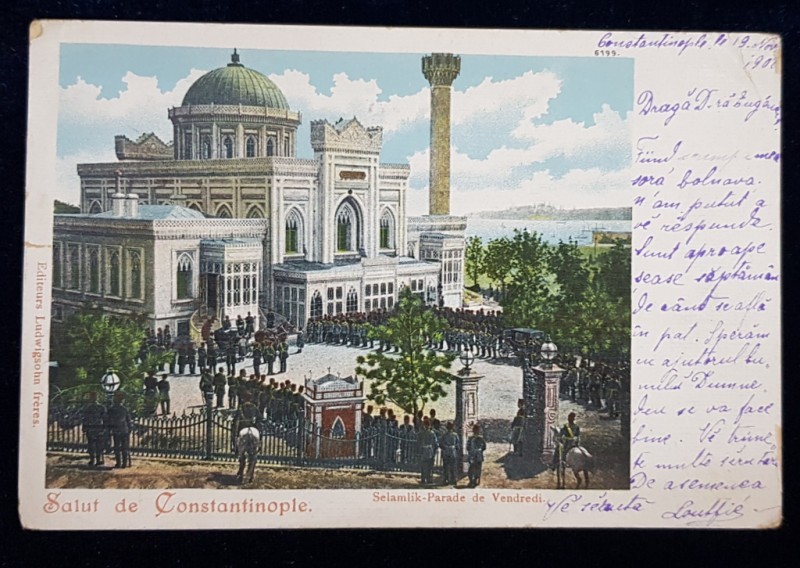 Constantinople, le 19 Nov
6199.
190
Dragă D.
Fiind
soră bolnavă.
n'am putut a
vĕ rĕspunde.
Sunt aproape
sease săptămân
de când se află
în pat. Sperăm
în ajutorul bu
nului Dumne
deu se va face
bine. Vĕ trime
te multe sărutări
De asemenea
Vĕ sărută
Loutfié
Editeurs Ludwigsohn frères.
Salut de Constantinople.
Selamlik-Parade de Vendredi.